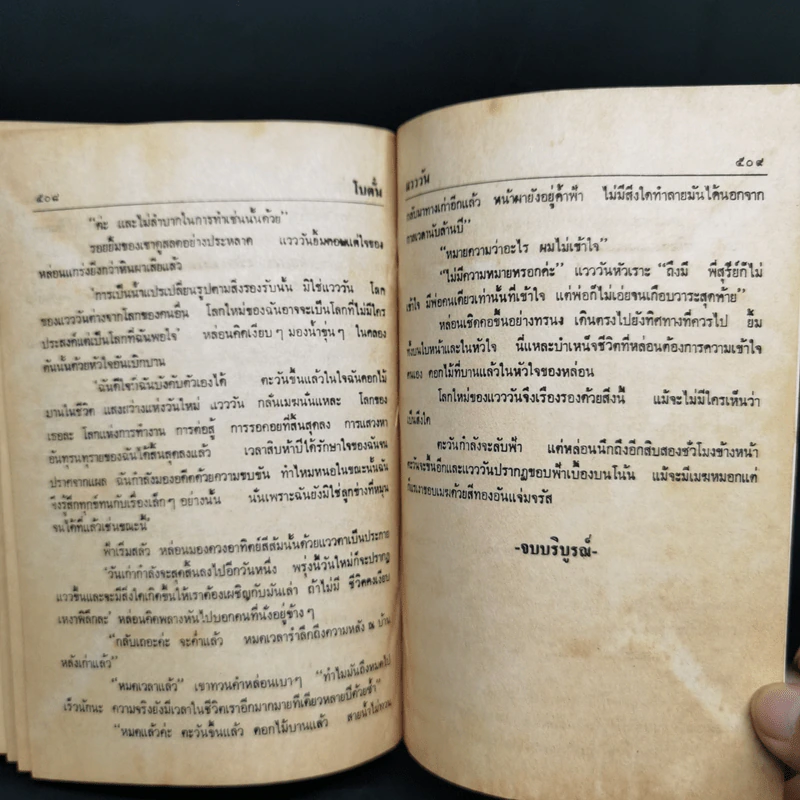 ๕๐๘ โบตั๋น
"ค่ะ และไม่ลำบากในการทำเช่นนั้นด้วย"
รอยยิ้มของเขาดูสลดอย่างประหลาด แวววันยิ้มตอบแต่ใจของ
หล่อนแกร่งยิ่งกว่าหินผาเสียแล้ว
'การเป็นน้ำแปรเปลี่ยนรูปตามสิ่งรองรับนั้น มิใช่แวววัน โลก
ของแวววันต่างจากโลกของคนอื่น โลกใหม่ของฉันอาจจะเป็นโลกที่ไม่มีใคร
ประสงค์แต่เป็นโลกที่ฉันพอใจ' หล่อนคิดเงียบๆ มองน้ำขุ่นๆ ในคลอง
ตื้นนั้นด้วยหัวใจอันเบิกบาน
'ฉันดีใจที่ฉันบังคับตัวเองได้ ตะวันขึ้นแล้วในใจฉันดอกไม้
บานในชีวิต แสงกว่างแห่งวันใหม่ แวววัน กลั่นเมฆนั่นแหละ โลกของ
เธอละ โลกแห่งการทำงาน การต่อสู้ การรอคอยที่สิ้นสุดลง การแสวงหา
อันทุรนทุรายของฉันได้สิ้นสุดลงแล้ว เวลาสิบห้าปีได้รักษาใจของฉันจน
ปราศจากแผล ฉันกำลังมองอดีตด้วยความขบขัน ทำไหมหนอในขณะนั้นฉัน
จึงรู้สึกทุกข์ทนกับเรื่องเล็กๆ อย่างนั้น นั่นเพราะฉันยังมิใช่ลูกช่างที่หมุน
จนได้ที่แล้วเช่นขณะนี้'
ฟ้าเริ่มสลัว หล่อนมองดวงอาทิตย์สีส้มนั้นด้วยแววตาเป็นประกาย
'วันเก่ากำลังจะสุดสิ้นลงไปอีกวันหนึ่ง พรุ่งนี้วันใหม่ก็จะปรากฏ
แววขึ้นและจะมีสิ่งใดเกิดขึ้นให้เราต้องเผชิญกับมันเล่า ถ้าไม่มี ชีวิตคงเงียบ
เหงาพิลึกละ' หล่อนคิดพลางหันไปบอกคนที่นั่งอยู่ข้างๆ
"กลับเถอะค่ะ จะค่ำแล้ว หมดเวลารำลึกถึงความหลัง ณ บ้าน
หลังเก่าแล้ว"
"หมดเวลาแล้ว" เขาทวนคำหล่อนเบาๆ "ทำไมมันถึงหมดไป
เร็วนักนะ ความจริงยังมีเวลาในชีวิตเราอีกมากมายทีเดียวหลายปีด้วยซ้ำ"
"หมดแล้วค่ะ ตะวันขึ้นแล้ว ดอกไม้บานแล้ว สายน้ำไม่
แวววัน ๕๐๙
กลับมาทางเก่าอีกแล้ว หน้าผายังอยู่ค้ำฟ้า ไม่มีสิ่งใดทำลายมันได้นอกจาก
กาลเวลานับล้านปี"
"หมายความว่าอะไร ผมไม่เข้าใจ"
"ไม่มีความหมายหรอกค่ะ" แวววันหัวเราะ "ถึงมี พี่สุรีย์ก็ไม่
เข้าใจ มีพ่อคนเดียวเท่านั้นที่เข้าใจ แต่พ่อก็ไม่เอ่ยจนเกือบวาระสุดท้าย"
หล่อนเชิดคอขึ้นอย่างทรนง เดินตรงไปยังทิศทางที่ควรไป ยิ้ม
ทั้งบนใบหน้าและในหัวใจ นี่แหละบำเหน็จชีวิตที่หล่อนต้องการความเข้าใจ
ตนเอง ดอกไม้ที่บานแล้วในหัวใจของหล่อน
โลกใหม่ของแวววันจึงเรืองรองด้วยสิ่งนี้ แม้จะไม่มีใครเห็นว่า
เป็นสิ่งใด
ตะวันกำลังจะลับฟ้า แต่หล่อนนึกถึงอีกสิบสองชั่วโมงข้างหน้า
ตะวันจะขึ้นอีกและแวววันปรากฏขอบฟ้าเบื้องบนโน้น แม้จะมีเมฆหมอกแต่
ก็แรเงาขอบเมฆด้วยสีทองอันแจ่มจรัส
-จบบริบูรณ์-